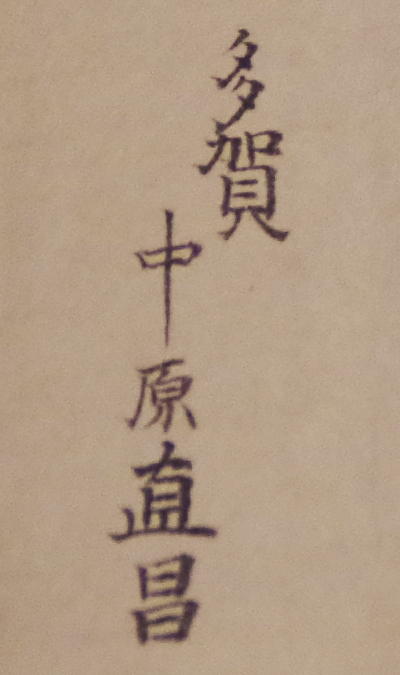 多賀
中原直昌